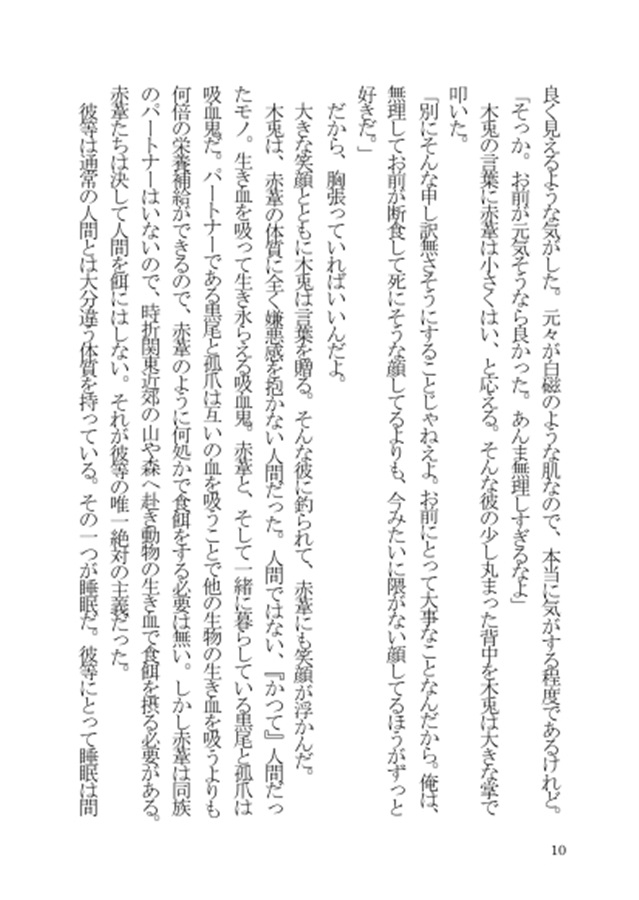 良く見えるような気がした。元々が白磁のような肌なので、本当に気がする程度であるけれど。
「そっか。お前が元気そうなら良かった。あんま無理しすぎるなよ」
木兎の言葉に赤葦は小さくはい、と応える。そんな彼の少し丸まった背中を木兎は大きな掌で
叩いた。
「別にそんな申し訳無さそうにすることじゃねえよ。お前にとって大事なことなんだから。俺は、
無理してお前が断食して死にそうな顔してるよりも、今みたいに隈がない顔してるほうがずっと
好きだ。」
だから、胸張っていればいいんだよ。
大きな笑顔とともに木兎は言葉を贈る。そんな彼に釣られて、赤葦にも笑顔が浮かんだ。
木兎は、赤葦の体質に全く嫌悪感を抱かない人間だった。人間ではない、『かつて』人間だっ
たモノ。生き血を吸って生き永らえる吸血鬼。赤葦と、そして一緒に暮らしている黒尾と孤爪は
吸血鬼だ。パートナーである黒尾と孤爪は互いの血を吸うことで他の生物の生き血を吸うよりも
何倍の栄養補給ができるので、赤葦のように何処かで食餌をする必要は無い。しかし赤葦は同族
のパートナーはいないので、時折関東近郊の山や森へ赴き動物の生き血で食餌を摂る必要がある。
赤葦たちは決して人間を餌にはしない。それが彼等の唯一絶対の主義だった。
彼等は通常の人間とは大分違う体質を持っている。その一つが睡眠だ。彼等にとって睡眠は間
10